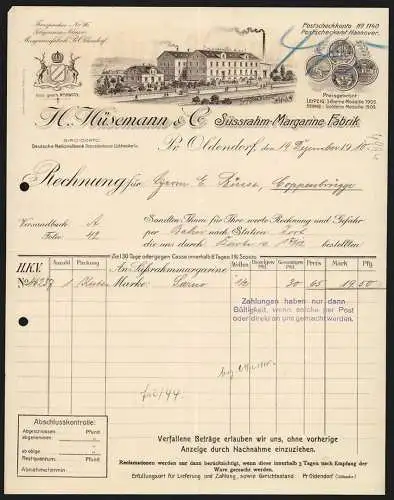 Fernsprecher No 36
Margarinefabrik Pr. Oldendorf.
Postscheckkonto No 1140
Postscheckamt Hannover.
H. Hüsemann & Co
Süssrahm-Margarine-Fabrik
Preisgekrönt:
LEIPZIG: Silberne Medaille 1905.
Goldene Medaille 1905.
GIROKONTO:
Deutsche Nationalbank
Pr. Oldendorf, den 19 Dezember 1910.
Rechnung für Herrn E. Coppenbrügge
Versandbuch A
Folio 42
Sandten Ihnen für Ihre werte Rechnung und Gefahr
per Bahn nach Station
die uns durch Karte v. bestellten
Ziel 30 Tage oder gegen Cassa innerhalb 8 Tagen 1% Sconto.
H.K.V. Anzahl Packung An Süßrahmmargarine Wellen Gesamtgew. Pfd. Preis Mark Pfg.
No 1 Kübel Marke 30 65 19 50
Zahlungen haben nur dann
Gültigkeit, wenn solche per Post
oder direkt an uns gemacht werden.
Abschlusskontrolle:
Abgeschlossen Pfund
abgenommen: "
ab obige "
Restquantum: Pfund
Abnahmetermin:
Verfallene Beträge erlauben wir uns, ohne vorherige
Anzeige durch Nachnahme einzuziehen.
Reclamationen werden nur dann berücksichtigt, wenn diese innerhalb 3 Tagen nach Empfang der
Ware gemacht werden.
Erfüllungsort für Lieferung und Zahlung, sowie Gerichtsstand Pr. Oldendorf